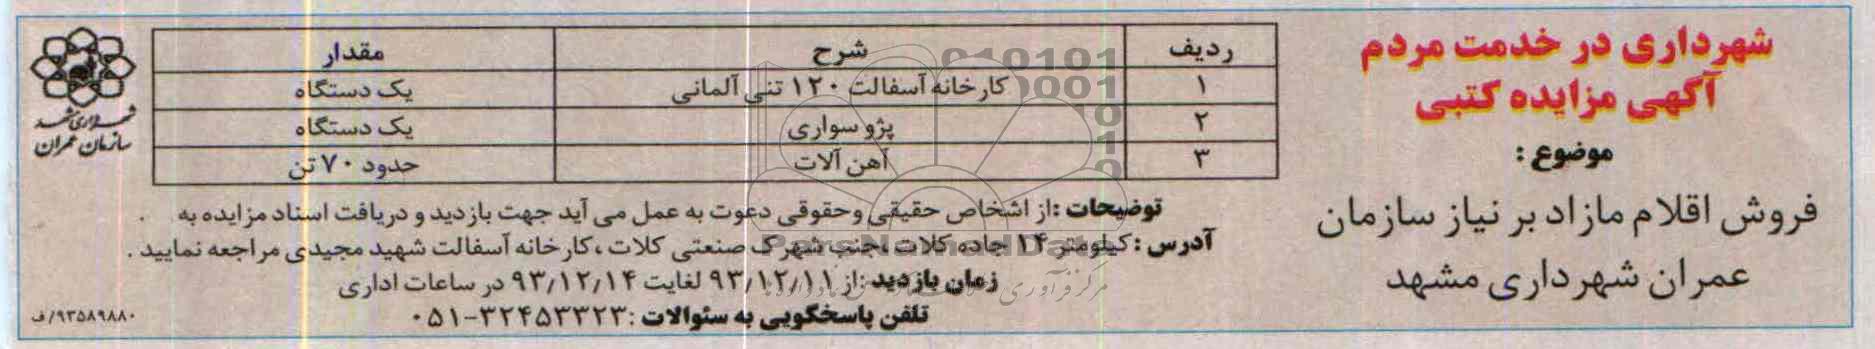 شهرداری در خدمت مردم
آگهی مزایده کتبی
موضوع :
فروش اقلام مازاد بر نیاز سازمان
عمران شهرداری مشهد
ردیف شرح مقدار
۱ کارخانه آسفالت ۱۲۰ تنی آلمانی یک دستگاه
۲ پژو سواری یک دستگاه
۳ آهن آلات حدود ۷۰ تن
توضیحات :از اشخاص حقیقی وحقوقی دعوت به عمل می آید جهت بازدید و دریافت اسناد مزایده به
آدرس : کیلومتر ۱۴ جاده کلات ،جنب شهرک صنعتی کلات ،کارخانه آسفالت شهید مجیدی مراجعه نمایید .
زمان بازدید :از ۹۳/۱۲/۱۱ لغایت ۹۳/۱۲/۱۴ در ساعات اداری
تلفن پاسخگویی به سئوالات :۳۲۴۵۳۳۲۳-۰۵۱
شهرداری مشهد
سازمان عمران
۹۳۵۸۹۸۸۰/ف
ParsNamadData